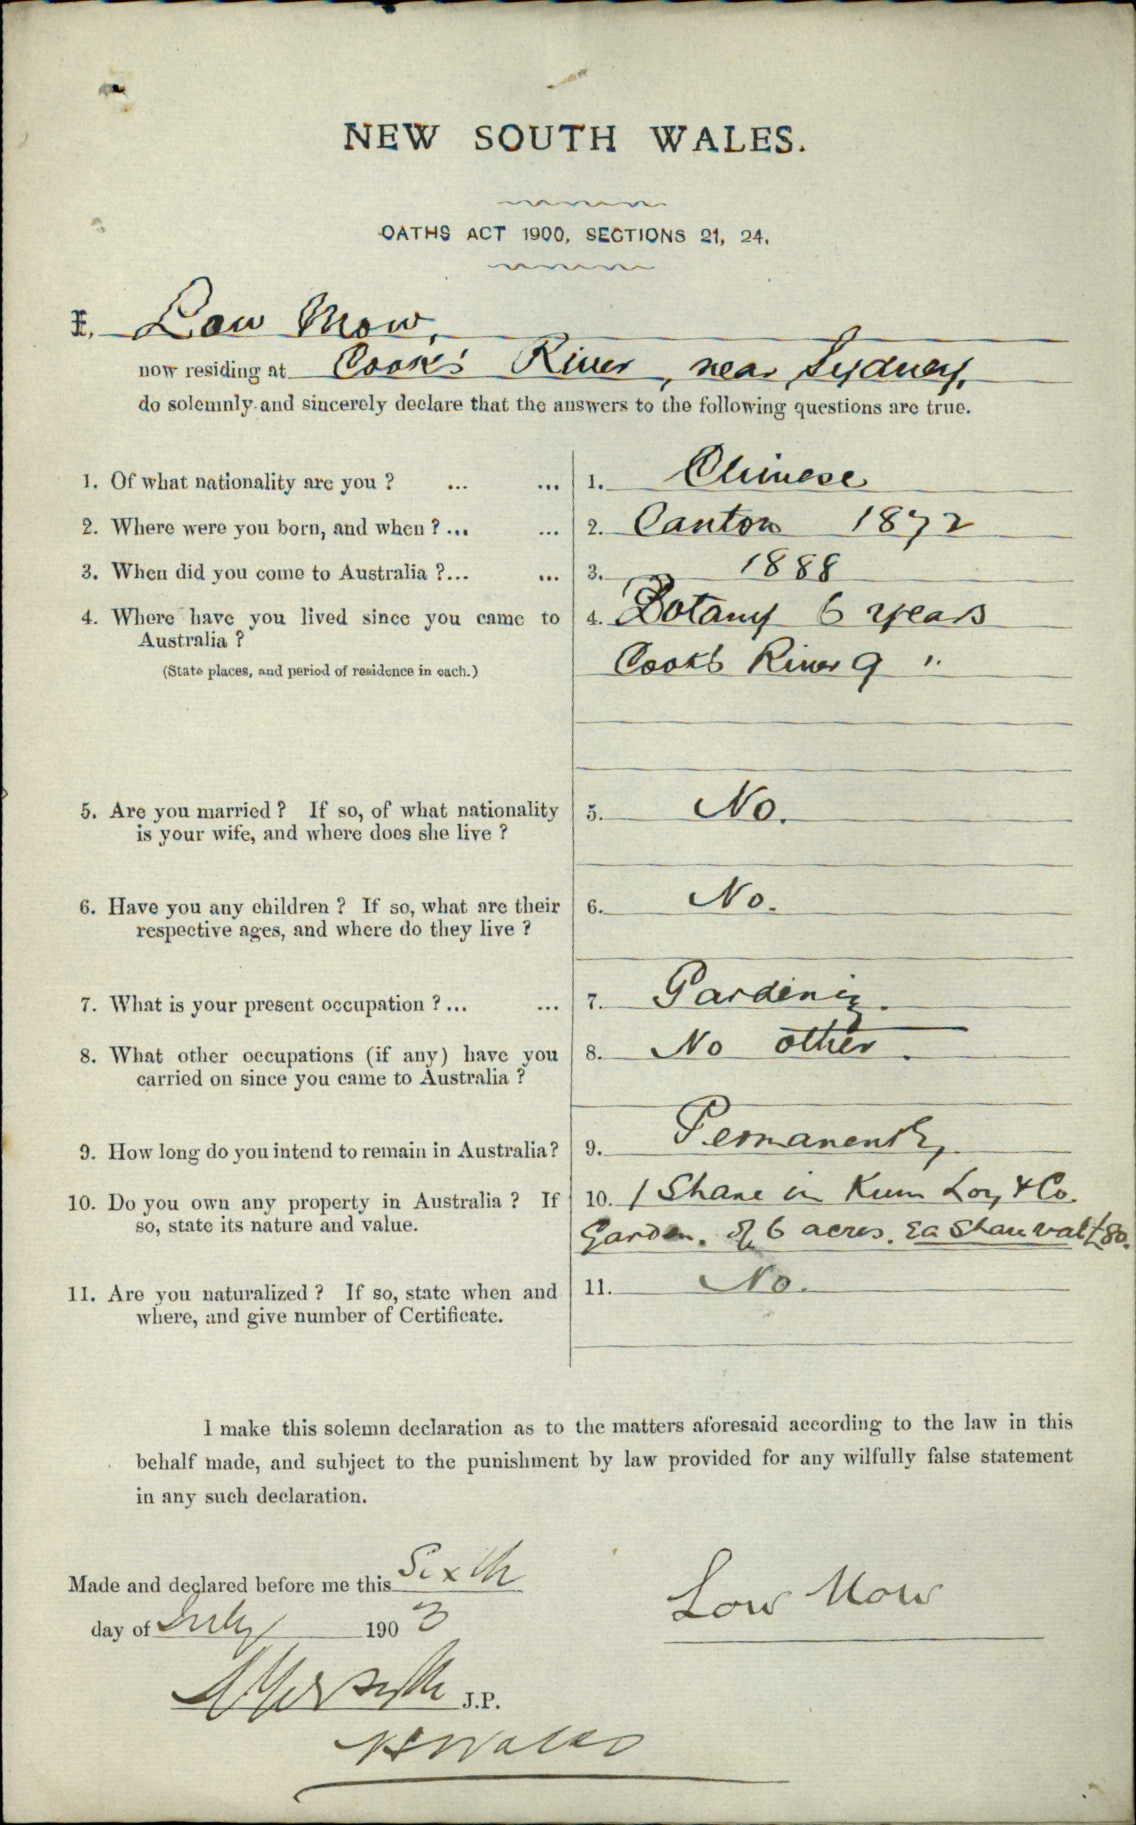 NEW SOUTH WALES.
OATHS ACT 1900, SECTIONS 21, 24.
I, Low Mow,
now residing at Cook's River, near Sydney,
do solemnly and sincerely declare that the answers to the following questions are true.
1. Of what nationality are you ? ... ... 1. Chinese
2. Where were you born, and when ? ... ... 2. Canton 1872
3. When did you come to Australia ?... ... 3. 1888
4. Where have you lived since you came to 4. Botany 6 years
Australia ?
(State places, and period of residence in each.) Cooks River 9 "
5. Are you married ? If so, of what nationality 5. No.
is your wife, and where does she live ?
6. Have you any children ? If so, what are their 6. No.
respective ages, and where do they live ?
7. What is your present occupation ? ... ... 7. Gardening.
8. What other occupations (if any) have you 8. No other.
carried on since you came to Australia ?
9. How long do you intend to remain in Australia? 9. Permanently
10. Do you own any property in Australia ? If 10. 1 Share in Kum Loy & Co.
so, state its nature and value. Garden. of 6 acres. Ea Share val £80.
11. Are you naturalized ? If so, state when and 11. No.
where, and give number of Certificate.
I make this solemn declaration as to the matters aforesaid according to the law in this
behalf made, and subject to the punishment by law provided for any wilfully false statement
in any such declaration.
Made and declared before me this Sixth
day of July 1903
Low Mow
J.P.
N S Wales